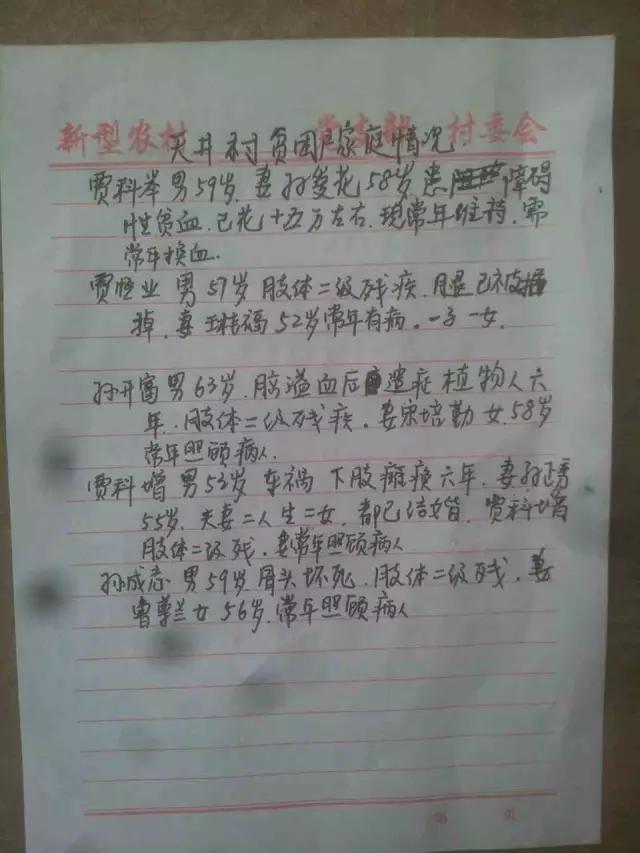 新型农村 党支部 村委会
天井村贫困户家庭情况
贾科举男59岁.妻孙爱花58岁患障碍
性贫血.已花十五万左右.现常年维药.需
常年换血.
贾恒业 男57岁肢体二级残疾.腿已被
掉.妻 福52岁常年有病.一子一女.
孙开富男63岁.脑溢血后遗症植物人六
年.肢体二级残疾.妻宋培勤女.58岁
常年照顾病人.
贾科增男53岁车祸下肢瘫痪六年.妻孙
55岁.夫妻二人生二女.都已结婚.贾科增
肢体二级残.妻常年照顾病人
孙成志男59岁骨头坏死.肢体二级残.妻
曹尊兰女56岁.常年照顾病人
第 页